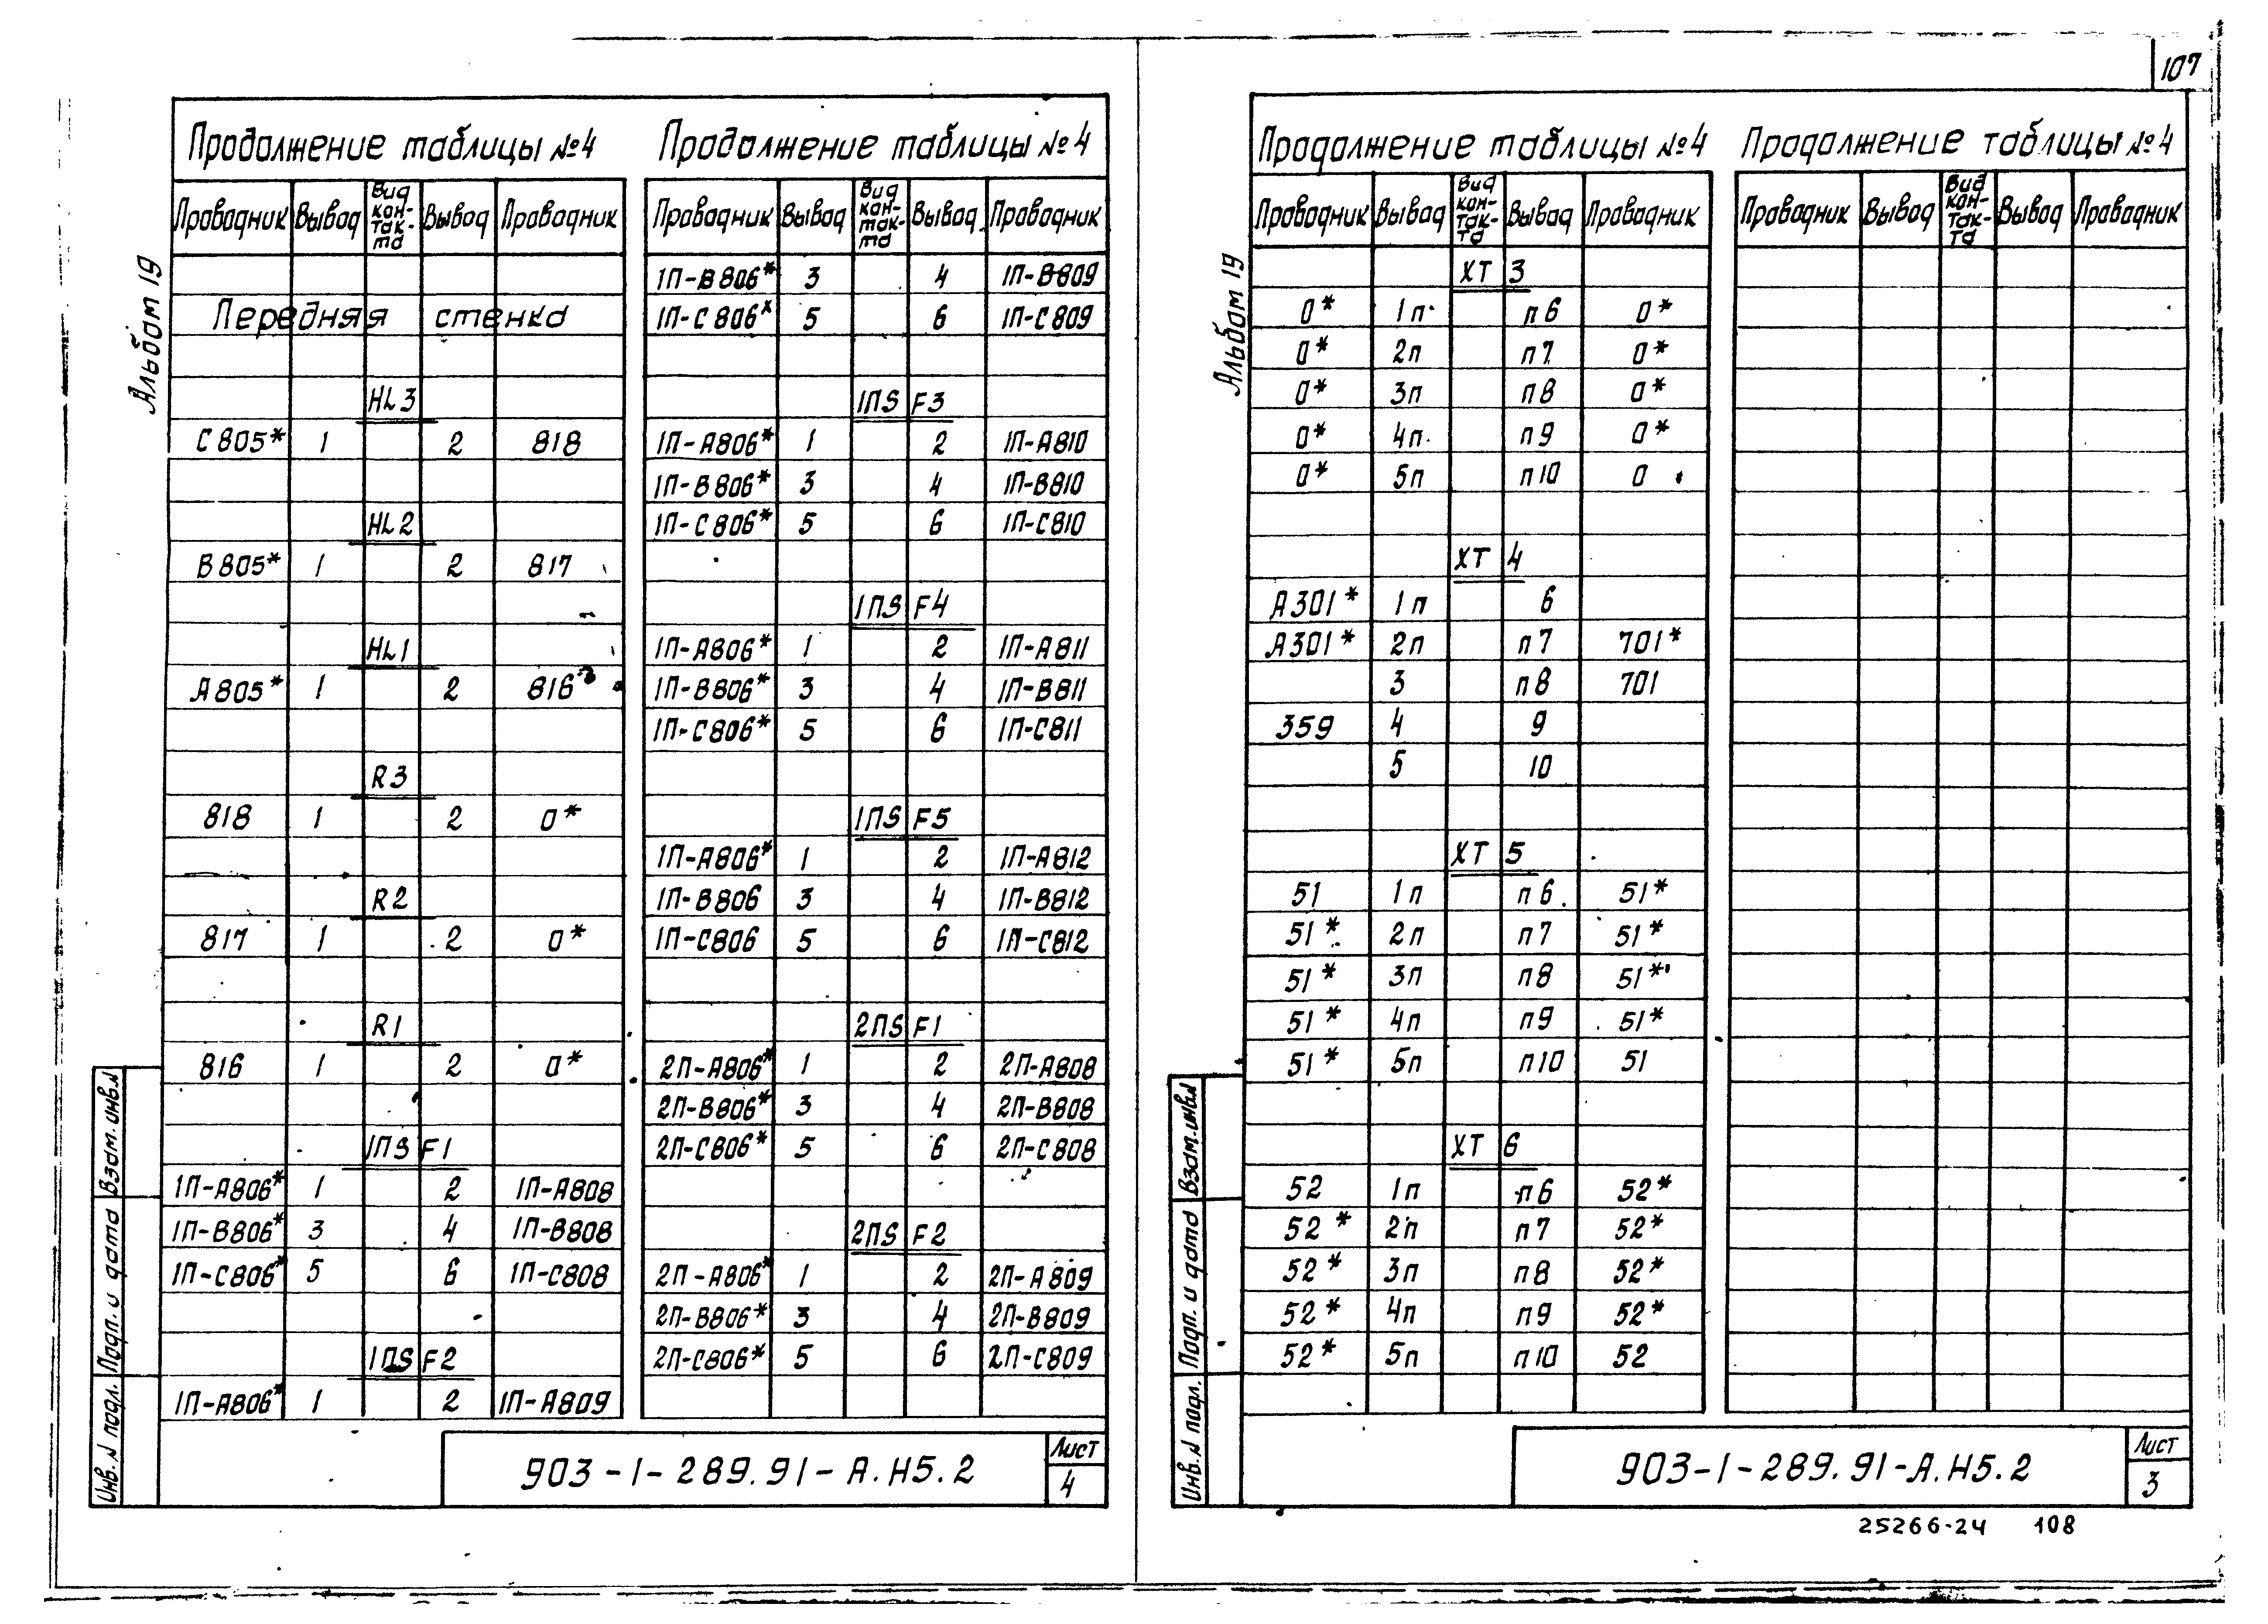 107
Альбом 19
Продолжение таблицы №4
Проводник Вывод Вид кон-так-та Вывод Проводник
Передняя стенка
HL3
C805* 1 2 818
HL2
B805* 1 2 817
HL1
A805* 1 2 816
R3
818 1 2 0*
R2
817 1 2 0*
R1
816 1 2 0*
1ПSF1
1П-A806* 1 2 1П-A808
1П-B806* 3 4 1П-B808
1П-C806* 5 6 1П-C808
1ПSF2
1П-A806* 1 2 1П-A809
Продолжение таблицы №4
Проводник Вывод Вид кон-так-та Вывод Проводник
1П-B806* 3 4 1П-B809
1П-C806* 5 6 1П-C809
1ПSF3
1П-A806* 1 2 1П-A810
1П-B806* 3 4 1П-B810
1П-C806* 5 6 1П-C810
1ПSF4
1П-A806* 1 2 1П-A811
1П-B806* 3 4 1П-B811
1П-C806* 5 6 1П-C811
1ПSF5
1П-A806* 1 2 1П-A812
1П-B806 3 4 1П-B812
1П-C806 5 6 1П-C812
2ПSF1
2П-A806* 1 2 2П-A808
2П-B806* 3 4 2П-B808
2П-C806* 5 6 2П-C808
2ПSF2
2П-A806* 1 2 2П-A809
2П-B806* 3 4 2П-B809
2П-C806* 5 6 2П-C809
Инв.N подл. Подп. и дата Взам.инв.N
903-1-289.91-А.Н5.2
Лист
4
Альбом 19
Продолжение таблицы №4
Проводник Вывод Вид кон-так-та Вывод Проводник
XT 3
0* 1п п6 0*
0* 2п п7 0*
0* 3п п8 0*
0* 4п п9 0*
0* 5п п10 0
XT 4
A301* 1п 6
A301* 2п п7 701*
3 п8 701
359 4 9
5 10
XT 5
51 1п п6 51*
51* 2п п7 51*
51* 3п п8 51*
51* 4п п9 51*
51* 5п п10 51
XT 6
52 1п п6 52*
52* 2п п7 52*
52* 3п п8 52*
52* 4п п9 52*
52* 5п п10 52
Продолжение таблицы №4
Проводник Вывод Вид кон-так-та Вывод Проводник
Инв.N подл. Подп. и дата Взам.инв.N
903-1-289.91-А.Н5.2
Лист
3
25266-24 108